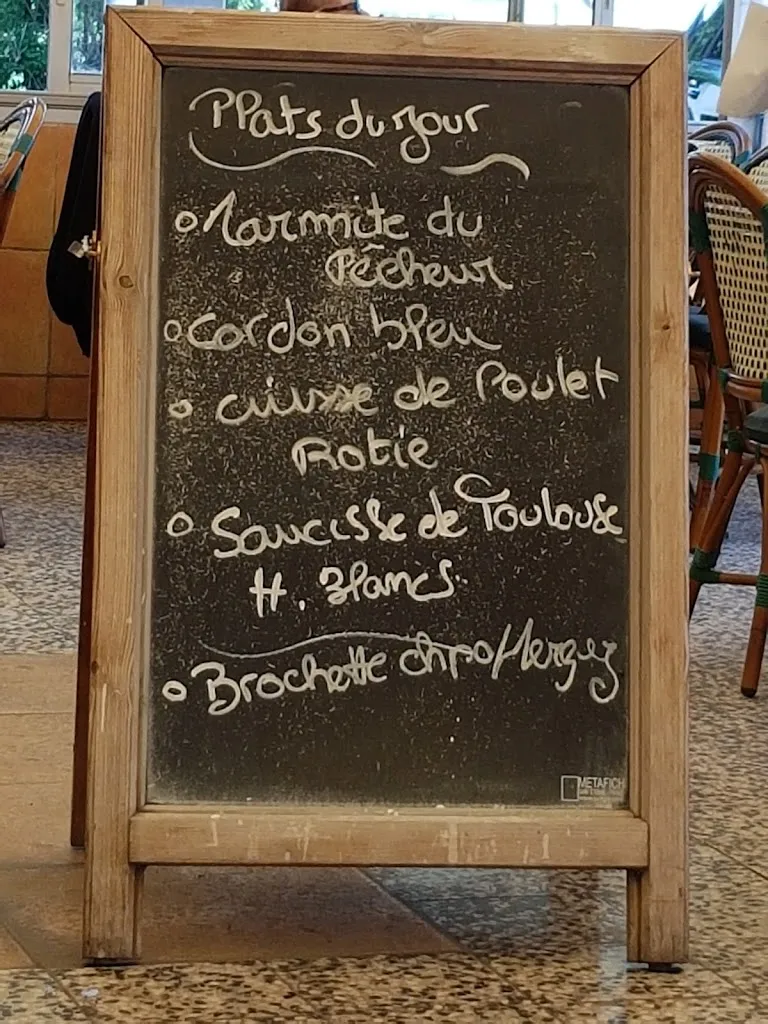 Plats du Jour
Marmite du
Pêcheur
cordon bleu
cuisse de Poulet
Rotie
Saucisse de Toulouse
H. Blancs
Brochette chipo/Merguez
METAFICH